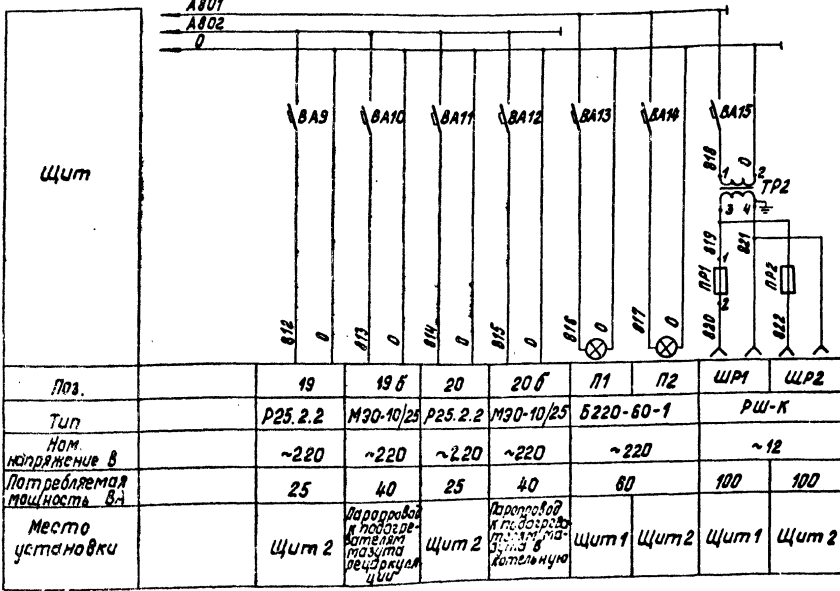 А801
А802
0
Щит
ВА9
ВА10
ВА11
ВА12
ВА13
ВА14
ВА15
818
0
1
2
ТР2
3
4
819
821
1
ПР1
2
ПР2
812
0
813
0
814
0
815
0
816
0
817
0
820
822
Поз.
19
19б
20
20б
П1
П2
ШР1
ШР2
Тип
Р25.2.2
МЭО-10/25
Р25.2.2
МЭО-10/25
Б220-60-1
РШ-К
Ном.
напряжение В
~220
~220
~220
~220
~220
~12
Потребляемая
мощность ВА
25
40
25
40
60
100
100
Место
установки
Щит 2
Паропровод
к подогре-
вателям
мазута
рециркуля
ции
Щит 2
Паропровод
к подогрева
телям ма-
зута в
котельную
Щит 1
Щит 2
Щит 1
Щит 2